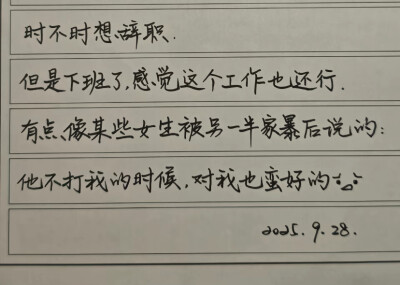 时不时想辞职.
但是下班了,感觉这个工作也还行.
有点像某些女生被另一半家暴后说的:
他不打我的时候,对我也蛮好的
2025.9.28.